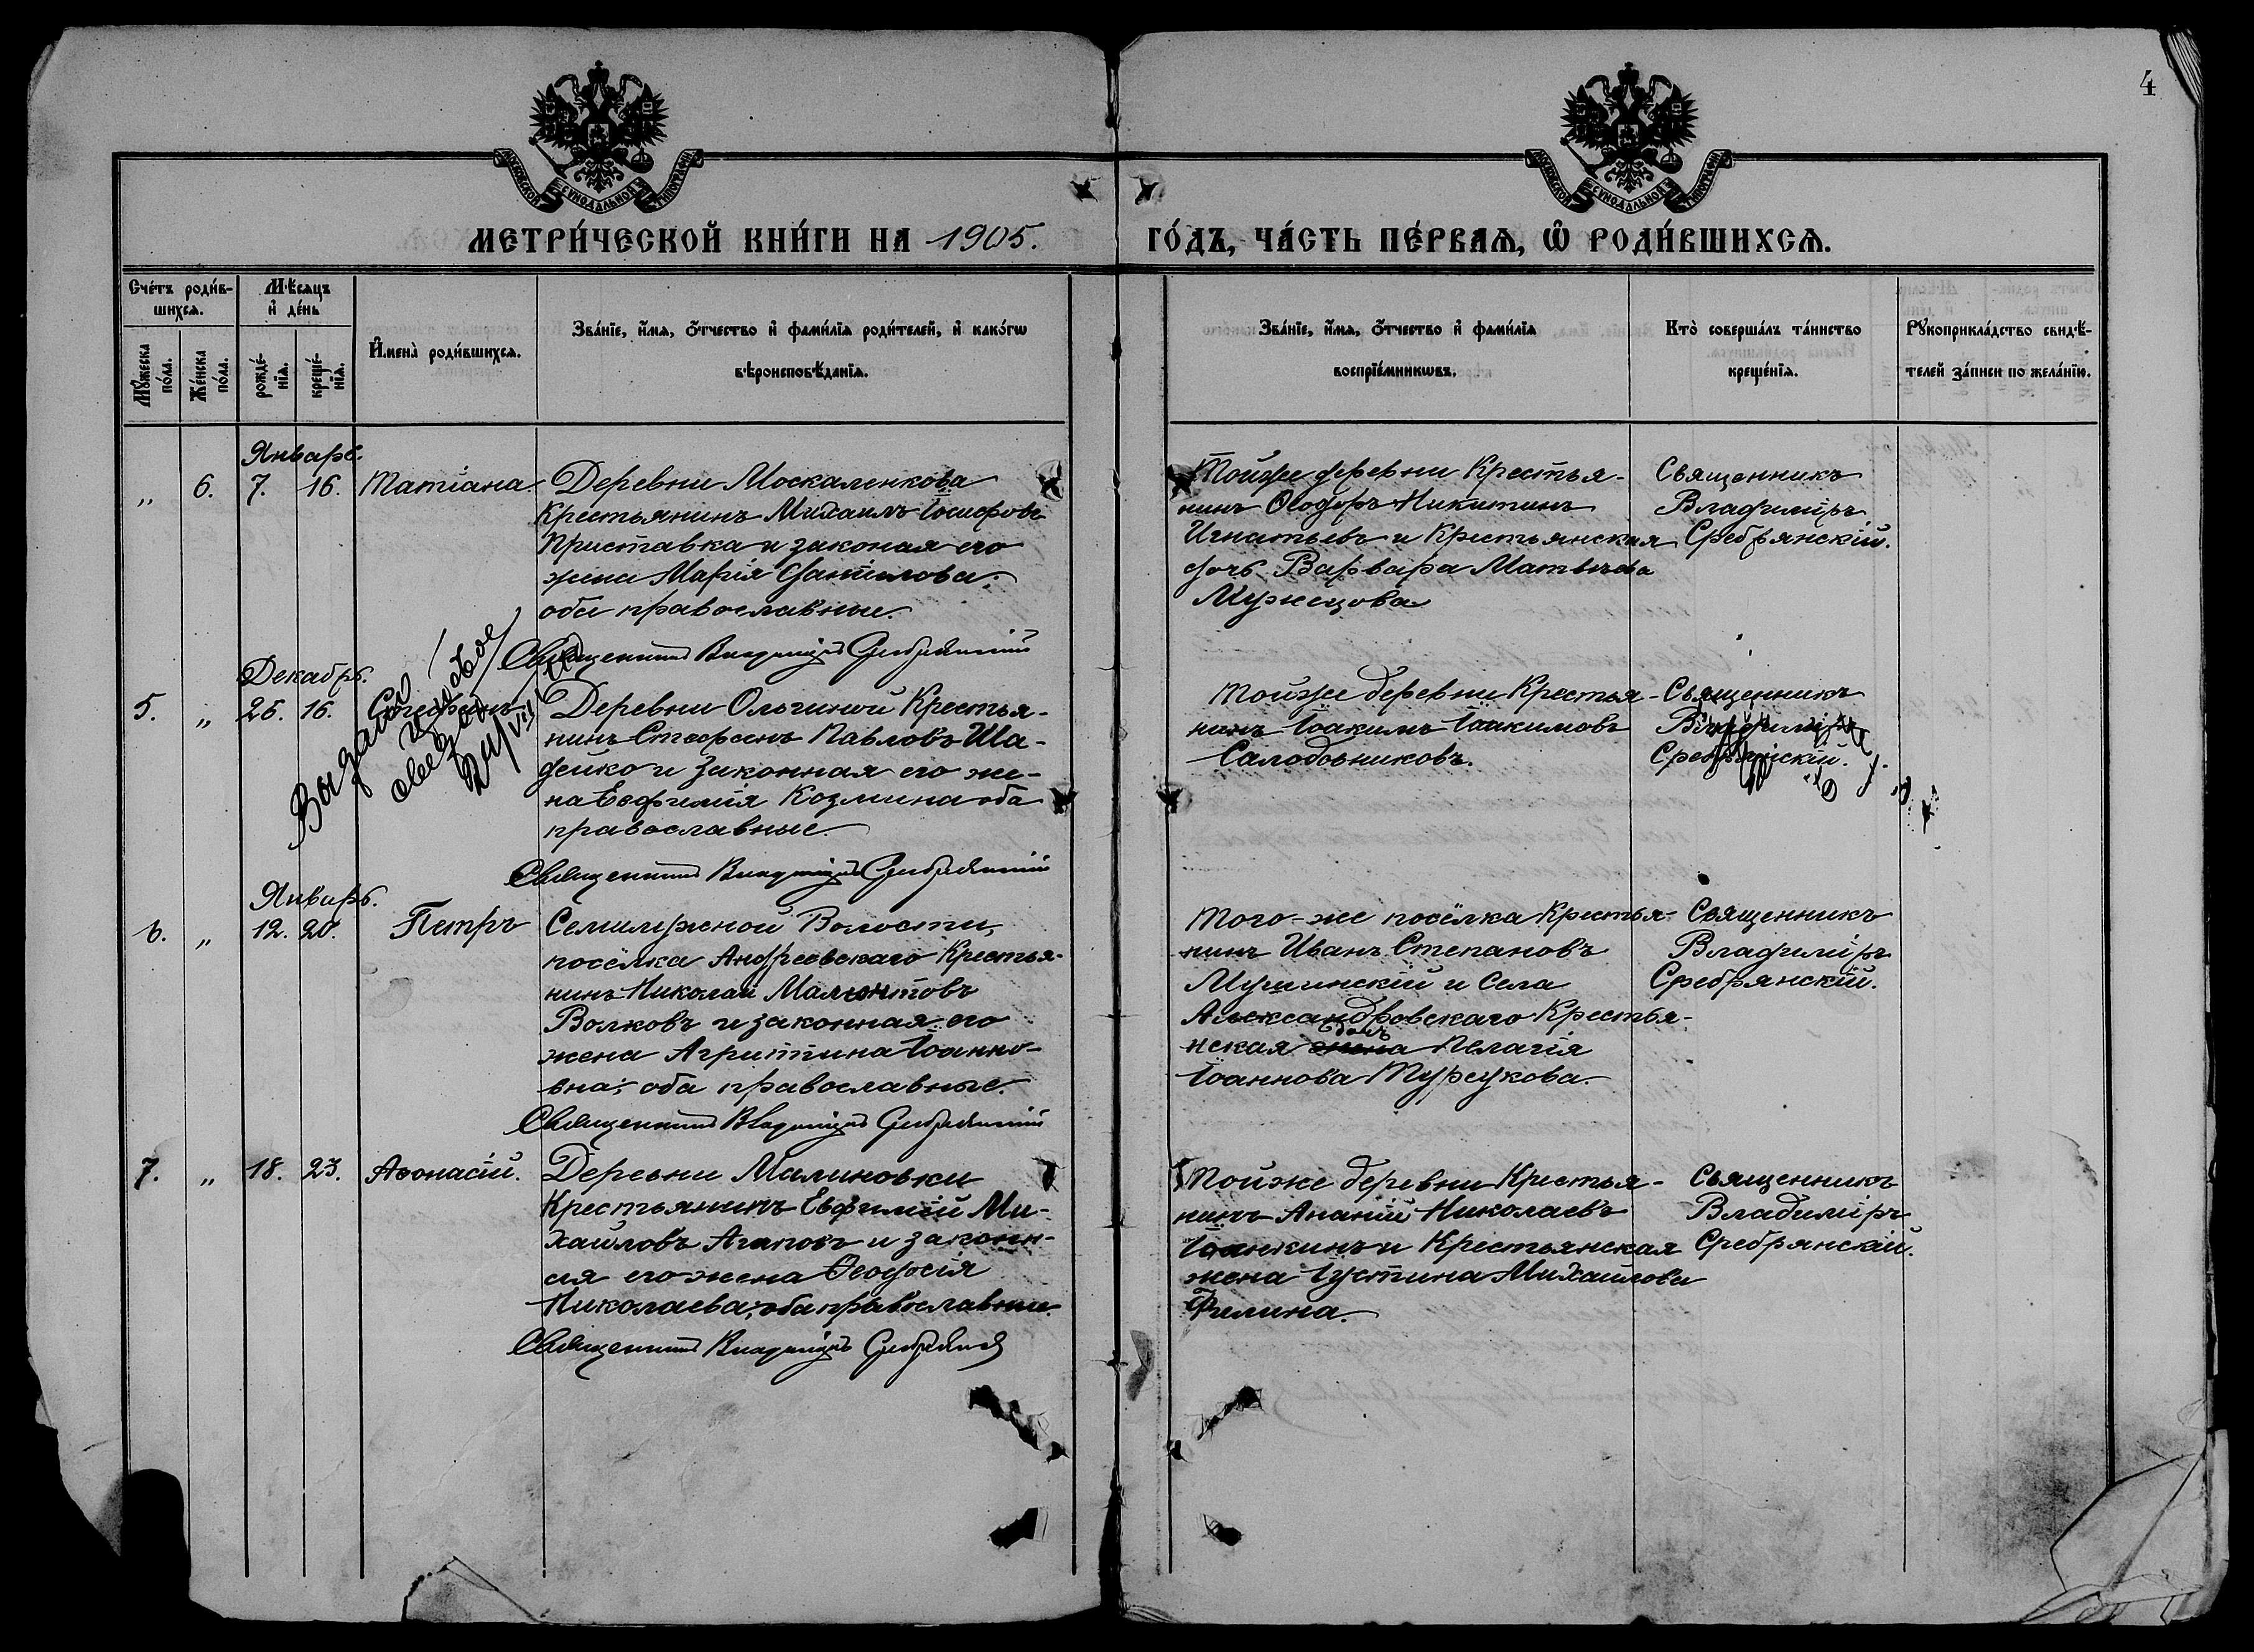 4
МОСКОВСКОЙ СѴНОДАЛЬНОЙ ТИПОГРАФІИ
МОСКОВСКОЙ СѴНОДАЛЬНОЙ ТИПОГРАФІИ
МЕТРИ́ЧЕСКОЙ КНИ́ГИ НА 1905. ГО́ДЪ, ЧА́СТЬ ПЕ́РВАѦ, Ѡ҆ РОДИ́ВШИХСѦ.
Сче́тъ роди́в-
шихсѧ.
Мꙋ́жеска по́ла.
Же́нска по́ла.
Мѣ́сѧцъ
и҆ де́нь
рожде́-
нїѧ.
креще́-
нїѧ.
И҆мена̀ роди́вшихсѧ.
Зва́нїе, и҆́мѧ, ѻ҆́тчество и҆ фами́лїѧ роди́телей, и҆ како́гѡ
вѣроисповѣ́данїѧ.
Зва́нїе, и҆́мѧ, ѻ҆́тчество и҆ фами́лїѧ
воспрїе́мникѡвъ.
Кто̀ соверша́лъ та́инство
креще́нїѧ.
Рꙋкоприкла́дство свидѣ́-
телей за́писи по жела́нїю.
Январь.
„ 6. 7. 16. Татіана.
Деревни Москаленкова
Крестьянинъ Михаилъ Іосифовъ
Приставка и законая его
жена Марія Данилова;
оба православные.
Священникъ Владиміръ Сребрянскій
Тойже деревни Крестья-
нинъ Ѳеодоръ Никитинъ
Игнатьевъ и Крестьянская
дочь Варвара Матвѣева
Священникъ
Владиміръ
Сребрянскій.
Декабрь.
5. „ 25. 16. Стефанъ
Выдано
Деревни Ольгиной Крестья-
нинъ Стефанъ Павловъ Ша-
денко и законная его же-
на Евфимія Козмина оба
православные.
Священникъ Владиміръ Сребрянскій
Тойже деревни Крестья-
нинъ Іоакимъ Іоакимовъ
Салодовниковъ.
Священникъ
Владиміръ
Сребрянскій.
Январь.
6. „ 12. 20. Петръ
Семиярской Волости,
посёлка Андреевскаго Крестья-
нинъ Николай
Волковъ и законная его
жена Агриппина Іоанно-
вна; оба православные.
Священникъ Владиміръ Сребрянскій
Того-же посёлка Крестья-
нинъ Иванъ Степановъ
Мушинскій и Села
Александровскаго Крестья-
нская жена дочь Пелагія
Іоаннова Турсукова.
Священникъ
Владиміръ
Сребрянскій.
7. „ 18. 23. Аѳонасій.
Деревни Малиновки
Крестьянинъ Евфимій Ми-
хайловъ Агаповъ и законн-
ая его жена Ѳеодосія
Николаева; оба православные.
Священникъ Владиміръ Сребрянскій
Тойже деревни Крестья-
нинъ Ананій Николаевъ
и Крестьянская
жена Іустина Михайлова
Филина.
Священникъ
Владиміръ
Сребрянскій.